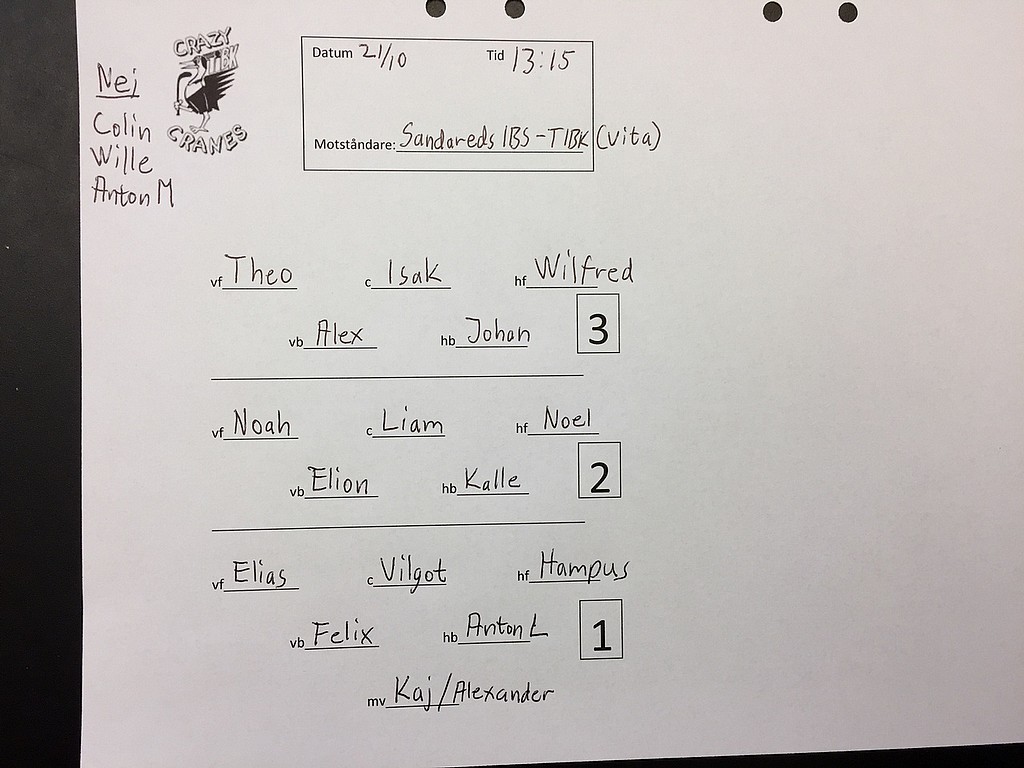 CRAZY
TIBK
CRANES
Nej
Colin
Wille
Anton M
Datum 21/10 Tid 13:15
Motståndare: Sandareds IBS - TIBK (Vita)
vf Theo c Isak hf Wilfred
vb Alex hb Johan 3
vf Noah c Liam hf Noel
vb Elion hb Kalle 2
vf Elias c Vilgot hf Hampus
vb Felix hb Anton L 1
mv Kaj/Alexander